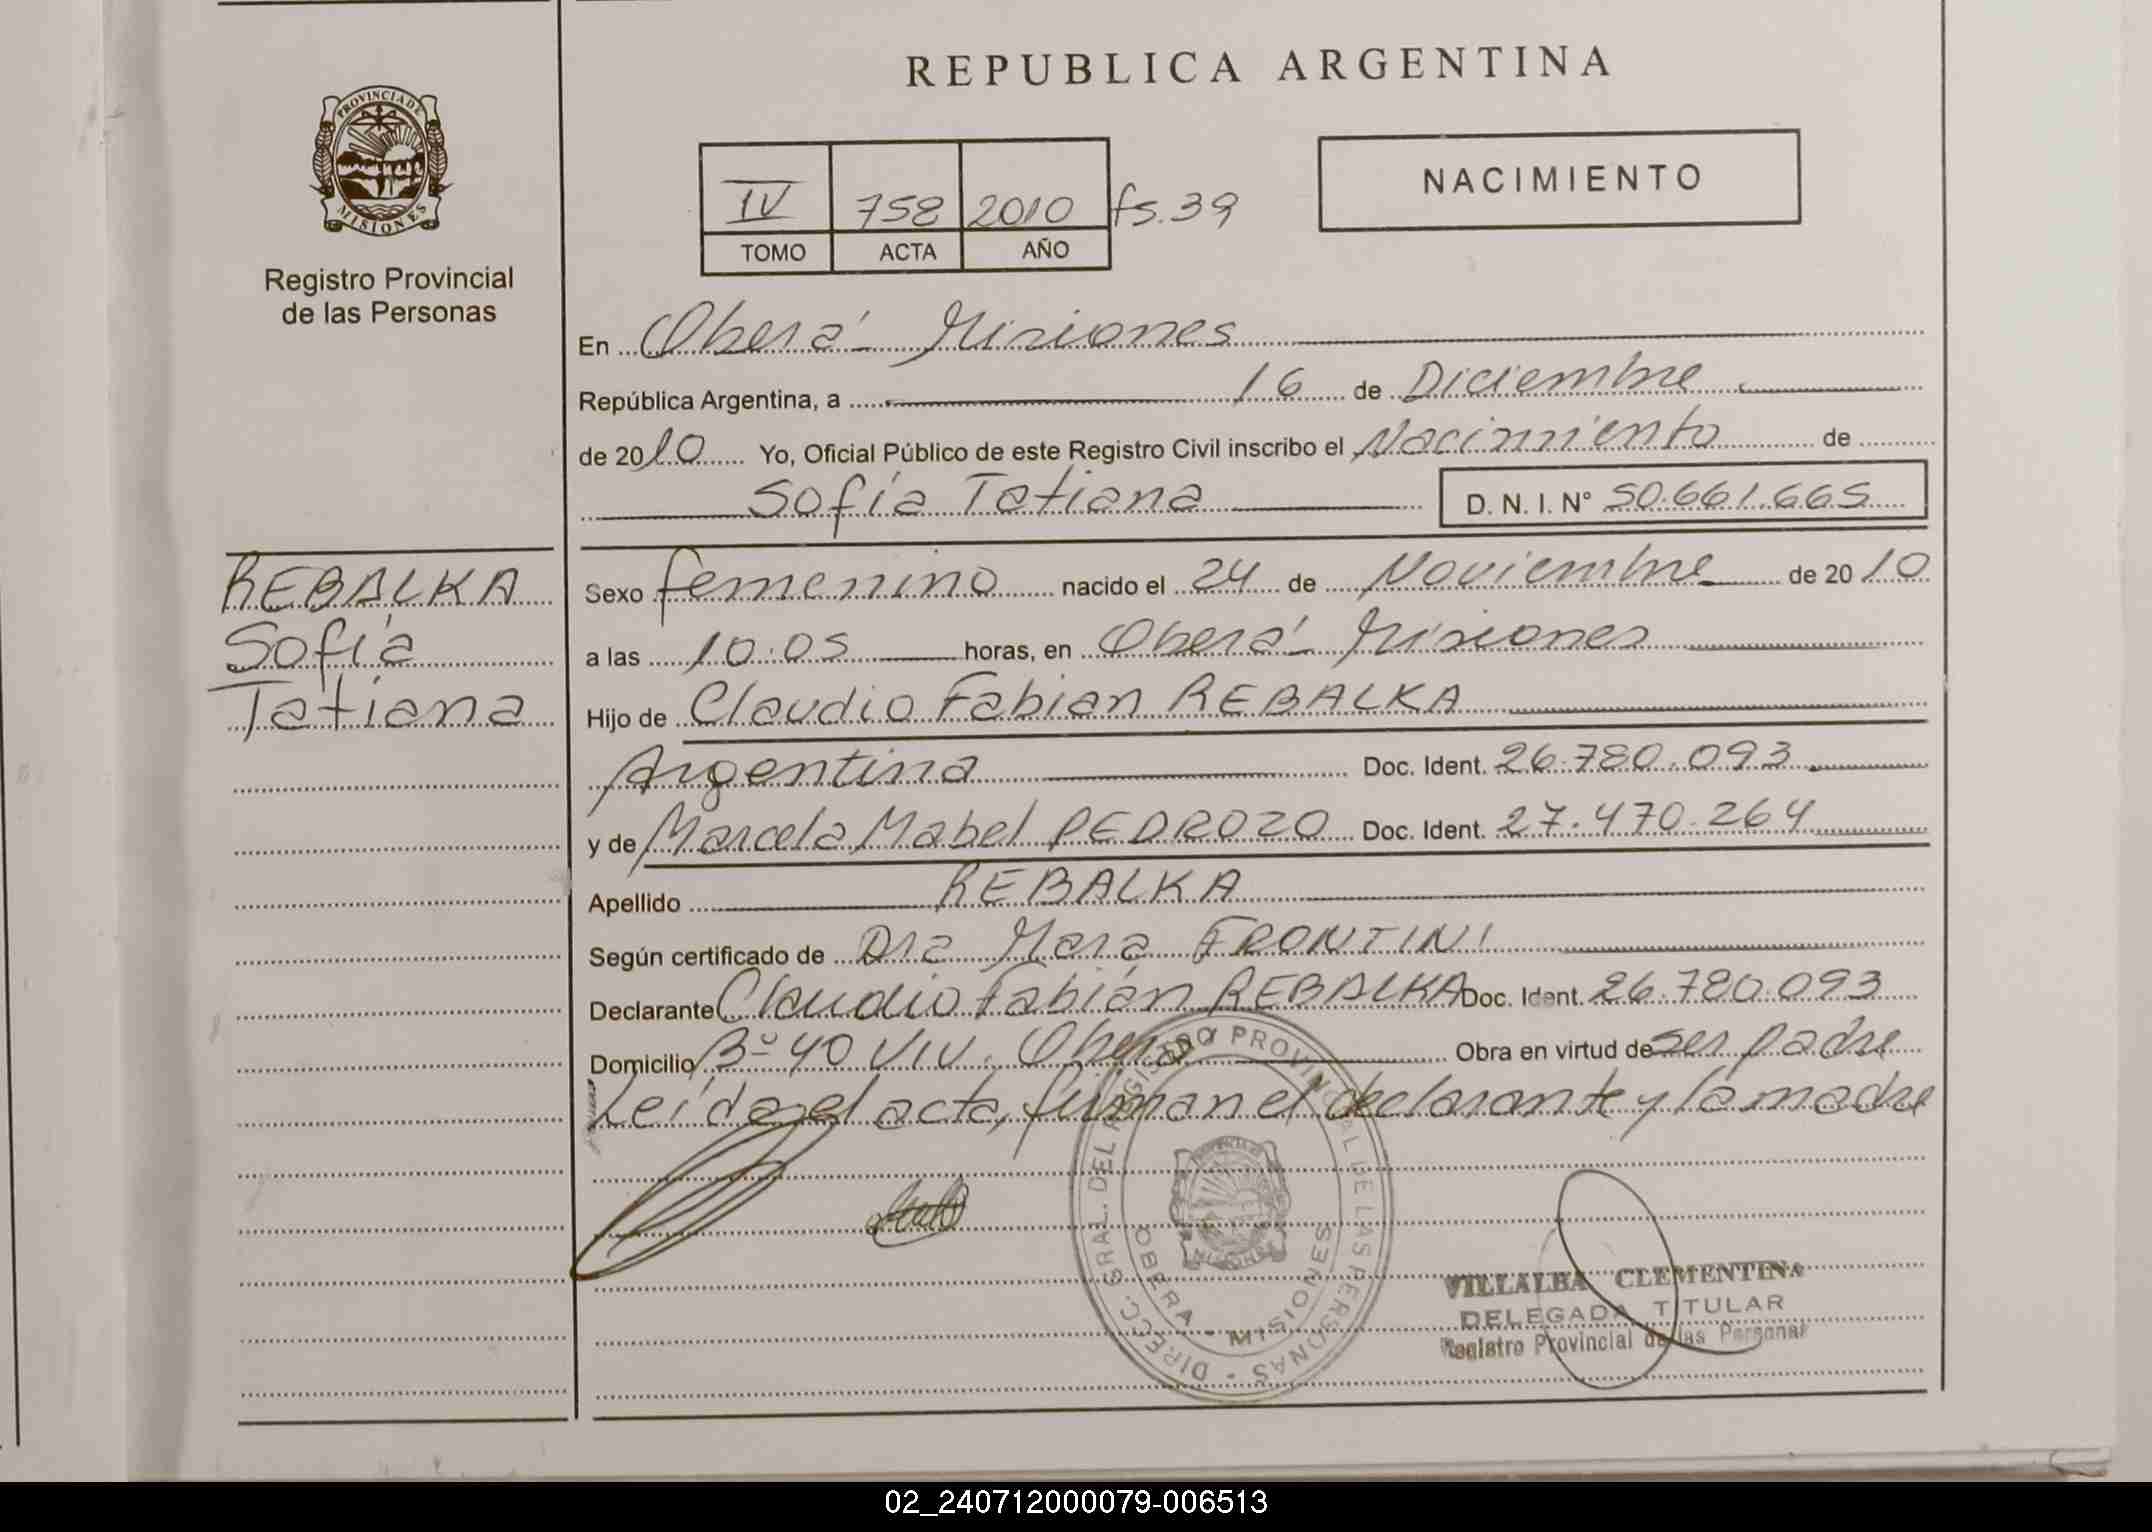 REPUBLICA ARGENTINA
PROVINCIA DE
MISIONES
Registro Provincial
de las Personas
NACIMIENTO
IV 758 2010 fs.39
TOMO ACTA AÑO
En Oberá - Misiones
República Argentina, a 16 de Diciembre
de 2010 Yo, Oficial Público de este Registro Civil inscribo el Nacimiento de
Sofía Tatiana D. N. I. N° 50.661.665
REBALKA
Sofía
Tatiana
Sexo femenino nacido el 24 de Noviembre de 2010
a las 10:05 horas, en Oberá - Misiones
Hijo de Claudio Fabian REBALKA
Argentina Doc. Ident. 26.780.093
y de Marcela Mabel PEDROZO Doc. Ident. 27.470.264
Apellido REBALKA
Según certificado de Dra Mara FRONTINI
Declarante Claudio Fabián REBALKA Doc. Ident. 26.780.093
Domicilio B° 40 Viv. Oberá Obra en virtud de ser padre
Leída el acta, firman el declarante y la madre
DIRECC. GRAL. DEL REGISTRO PROVINCIAL DE LAS PERSONAS
OBERA - MISIONES
MISIONES
VILLALBA CLEMENTINA
DELEGADA TITULAR
Registro Provincial de las Personas
02_240712000079-006513